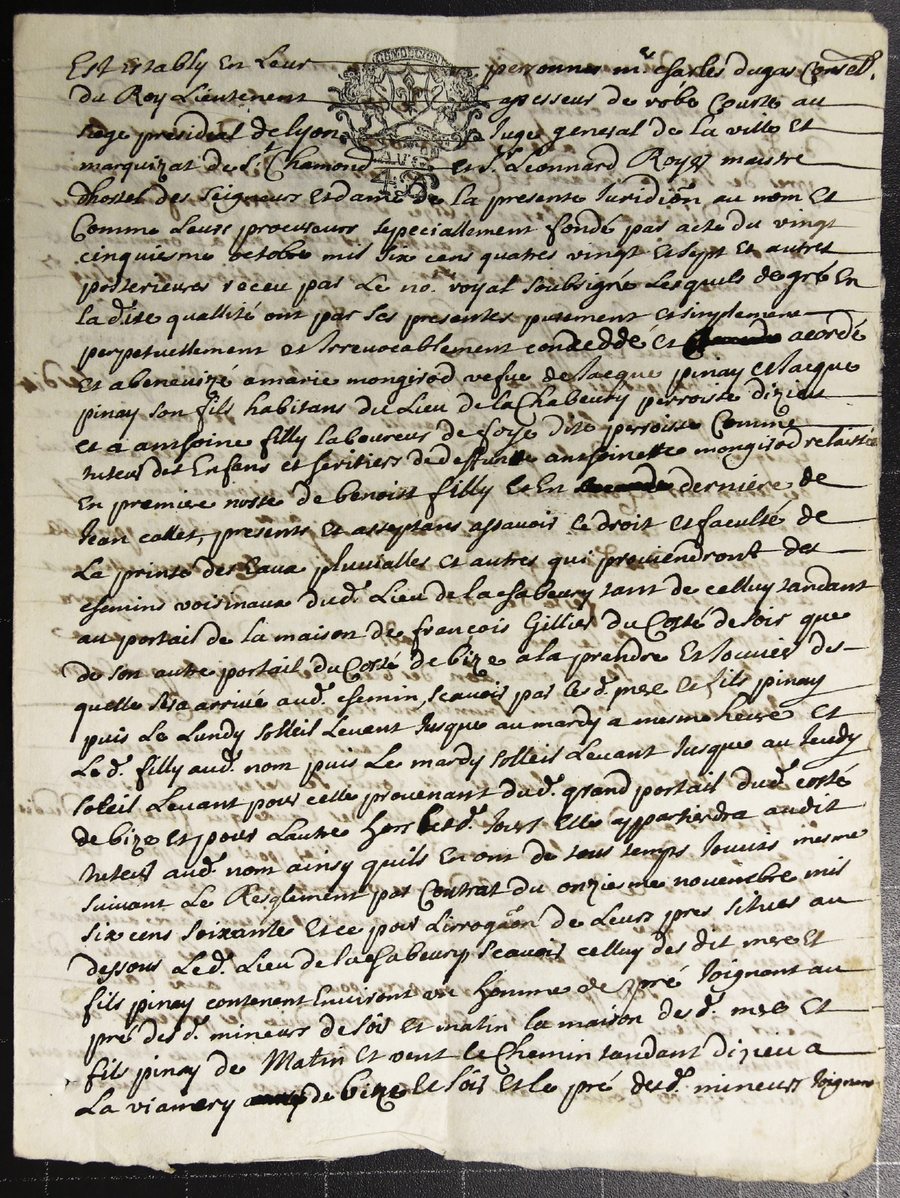 Est estably En Leur personnes mre charles dugas Conselr
du Roy Lieutenent assesseur de robe Courte au
siege presidial de lyon Juge general de la ville et
marquizat de St Chamond et Sr Leonnard Royer maistre
dhostel des Seigneurs et dame de la presente Juridion au nom et
Comme Leurs procureurs sepeciallement fondé par acte du vingt
cinquiesme octobre mil six cens quatres vingt et sept et autres
posterieures receu par Le no.re royal soubsigné Lesquels de gré En
la dite quallité ont par ses presentes purement et simplement
perpetuellement et Irrevocablement conceddé et acordé
et abenevizé a marie mongirod vefue de Jacque pinay et Jacque
pinay son fils habitans du Lieu de la Chabeury perroisse dizieu
et a anthoine filly laboureur de foye dite perroisse Comme
tuteur des Enfans et heritiers de deffunte anthoinette mongirod relaissée
En premiere noste de benoist filly et En derniere de
Jean collet, presents et acseptans assavoir Le droit et faculté de
La prinse des Eaux pluvialles et autres qui proviendront des
chemins voisinaux dud. Lieu de la chabeury tant de celluy tandant
au portail de la maison de françois Gillier du Costé de soir que
de son autre portail du Costé de bize a la prendre Et Jouuir des
quelle sera arrivé aud. chemin, scavoir par les d. mere et fils pinay
puis Le Lundy solleil Levant Jusque au mardy a mesme heure et
Le d. filly aud. nom puis Le mardy solleil Levant Jusque au Jeudy
soleil Levant pour celle provenant du d. grand portail du d. costé
de bize et pour Lautre hors lesd. Jours Elle appartiendra audit
tuteur aud. nom ainsy quils En ont de tous temps Jouuis mesme
suivant Le Resglement par Contrat du onziesme novembre mil
six cens soixante Et ce pour Lirrogaon de Leurs pres situes au
dessous Le d. Lieu de la chabeury scavoir celluy des dit mere et
fils pinay contenent Environt un homme de pré Joignent au
pré des d. mineurs de soir et matin la maison de d. mere et
fils pinay de Matin et vent le Chemin tandant dizieu a
La viamery de bize et soir et le pré des d. mineurs Joignent